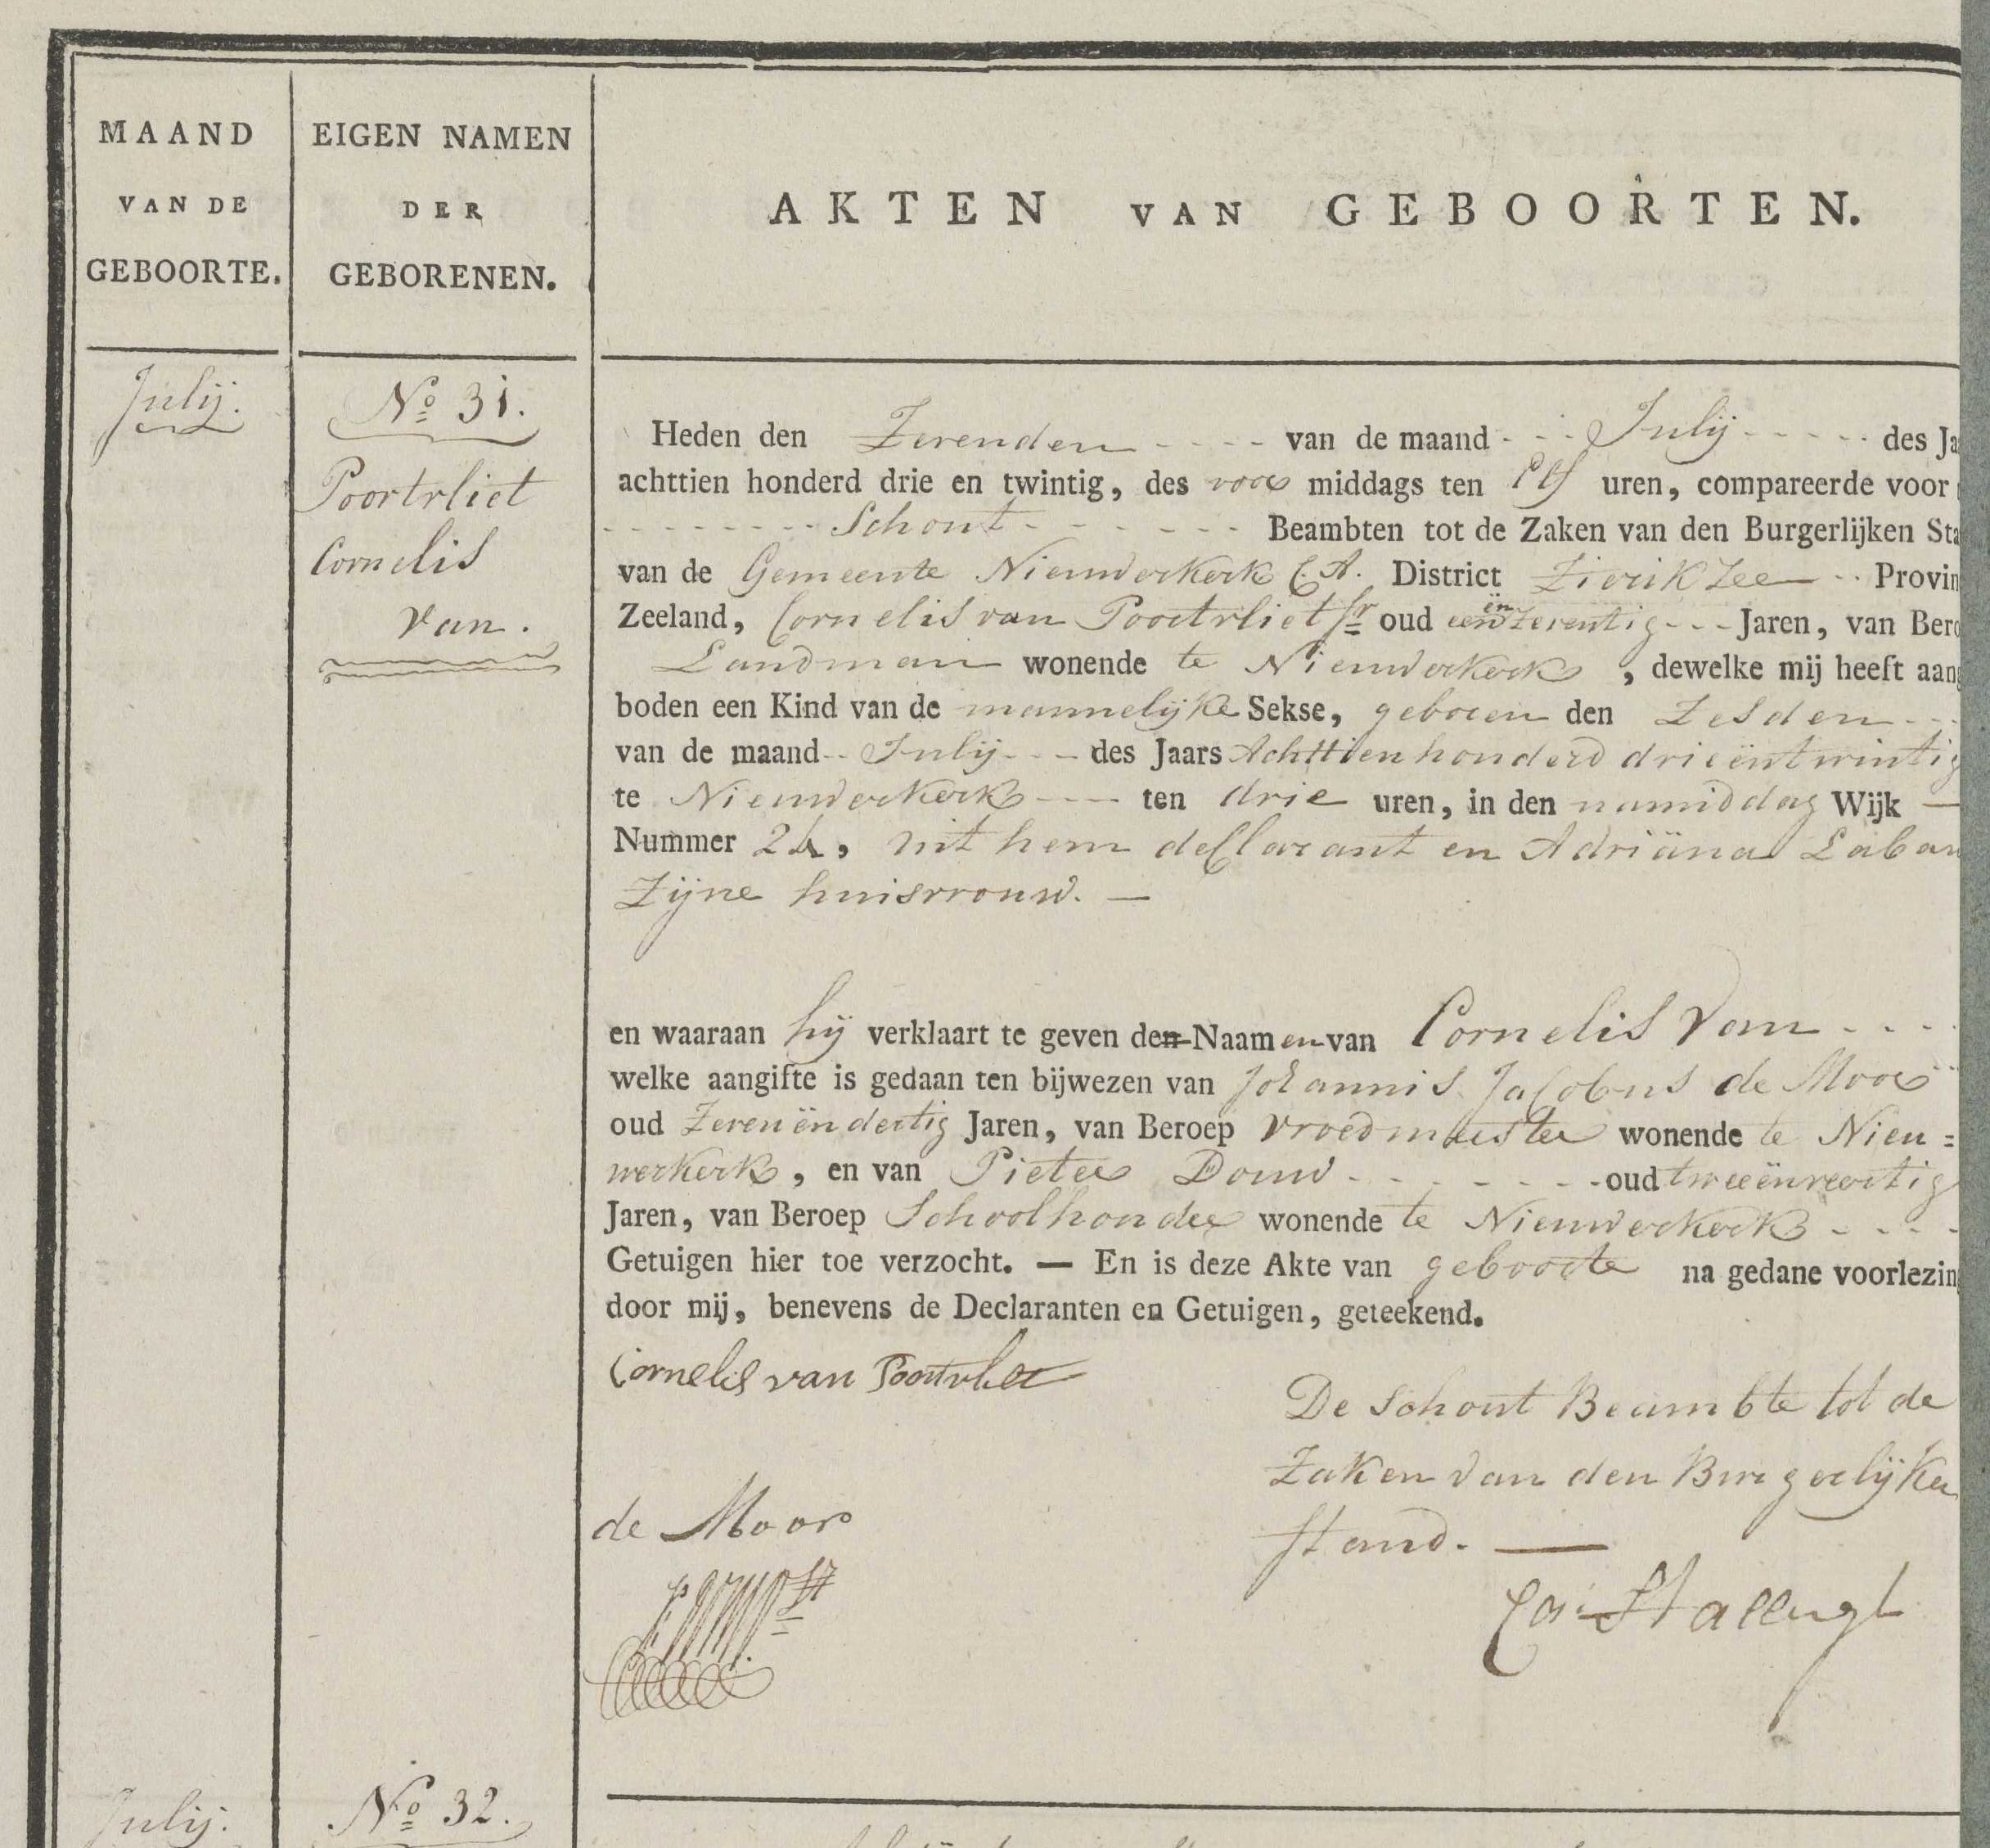 MAAND
VAN DE
GEBOORTE.
EIGEN NAMEN
DER
GEBORENEN.
AKTEN VAN GEBOORTEN.
Julij.
No 31.
Poortvliet
Cornelis
van.
Heden den Zevenden van de maand Julij des Ja
achttien honderd drie en twintig, des voor middags ten Elf uren, compareerde voor
Schout Beambten tot de Zaken van den Burgerlijken Sta
van de Gemeente Nieuwerkerk C.A. District Zierikzee Provin
Zeeland, Cornelis van Poortvliet Sr oud eenënzeventig Jaren, van Bero
Landman wonende te Nieuwerkerk, dewelke mij heeft aang
boden een Kind van de mannelijke Sekse, geboren den Zesden
van de maand Julij des Jaars Achttienhonderd drieëntwintig
te Nieuwerkerk ten drie uren, in den namiddag Wijk —
Nummer 24, uit hem declarant en Adriäna Laban
Zijne huisvrouw. —
en waaraan hij verklaart te geven den Naamen van Cornelis Van
welke aangifte is gedaan ten bijwezen van Johannis Jacobus de Moor
oud Zevenëndertig Jaren, van Beroep Vroedmeester wonende te Nieu=
werkerk, en van Pieter Douw oud tweeënveertig
Jaren, van Beroep Schoolhouder wonende te Nieuwerkerk
Getuigen hier toe verzocht. — En is deze Akte van geboorte na gedane voorlezin
door mij, benevens de Declaranten en Getuigen, geteekend.
Cornelis van Poortvliet
De Schout Beambte tot de
Zaken van den Burgerlijken
Stand. —
de Moor
Julij.
No 32.